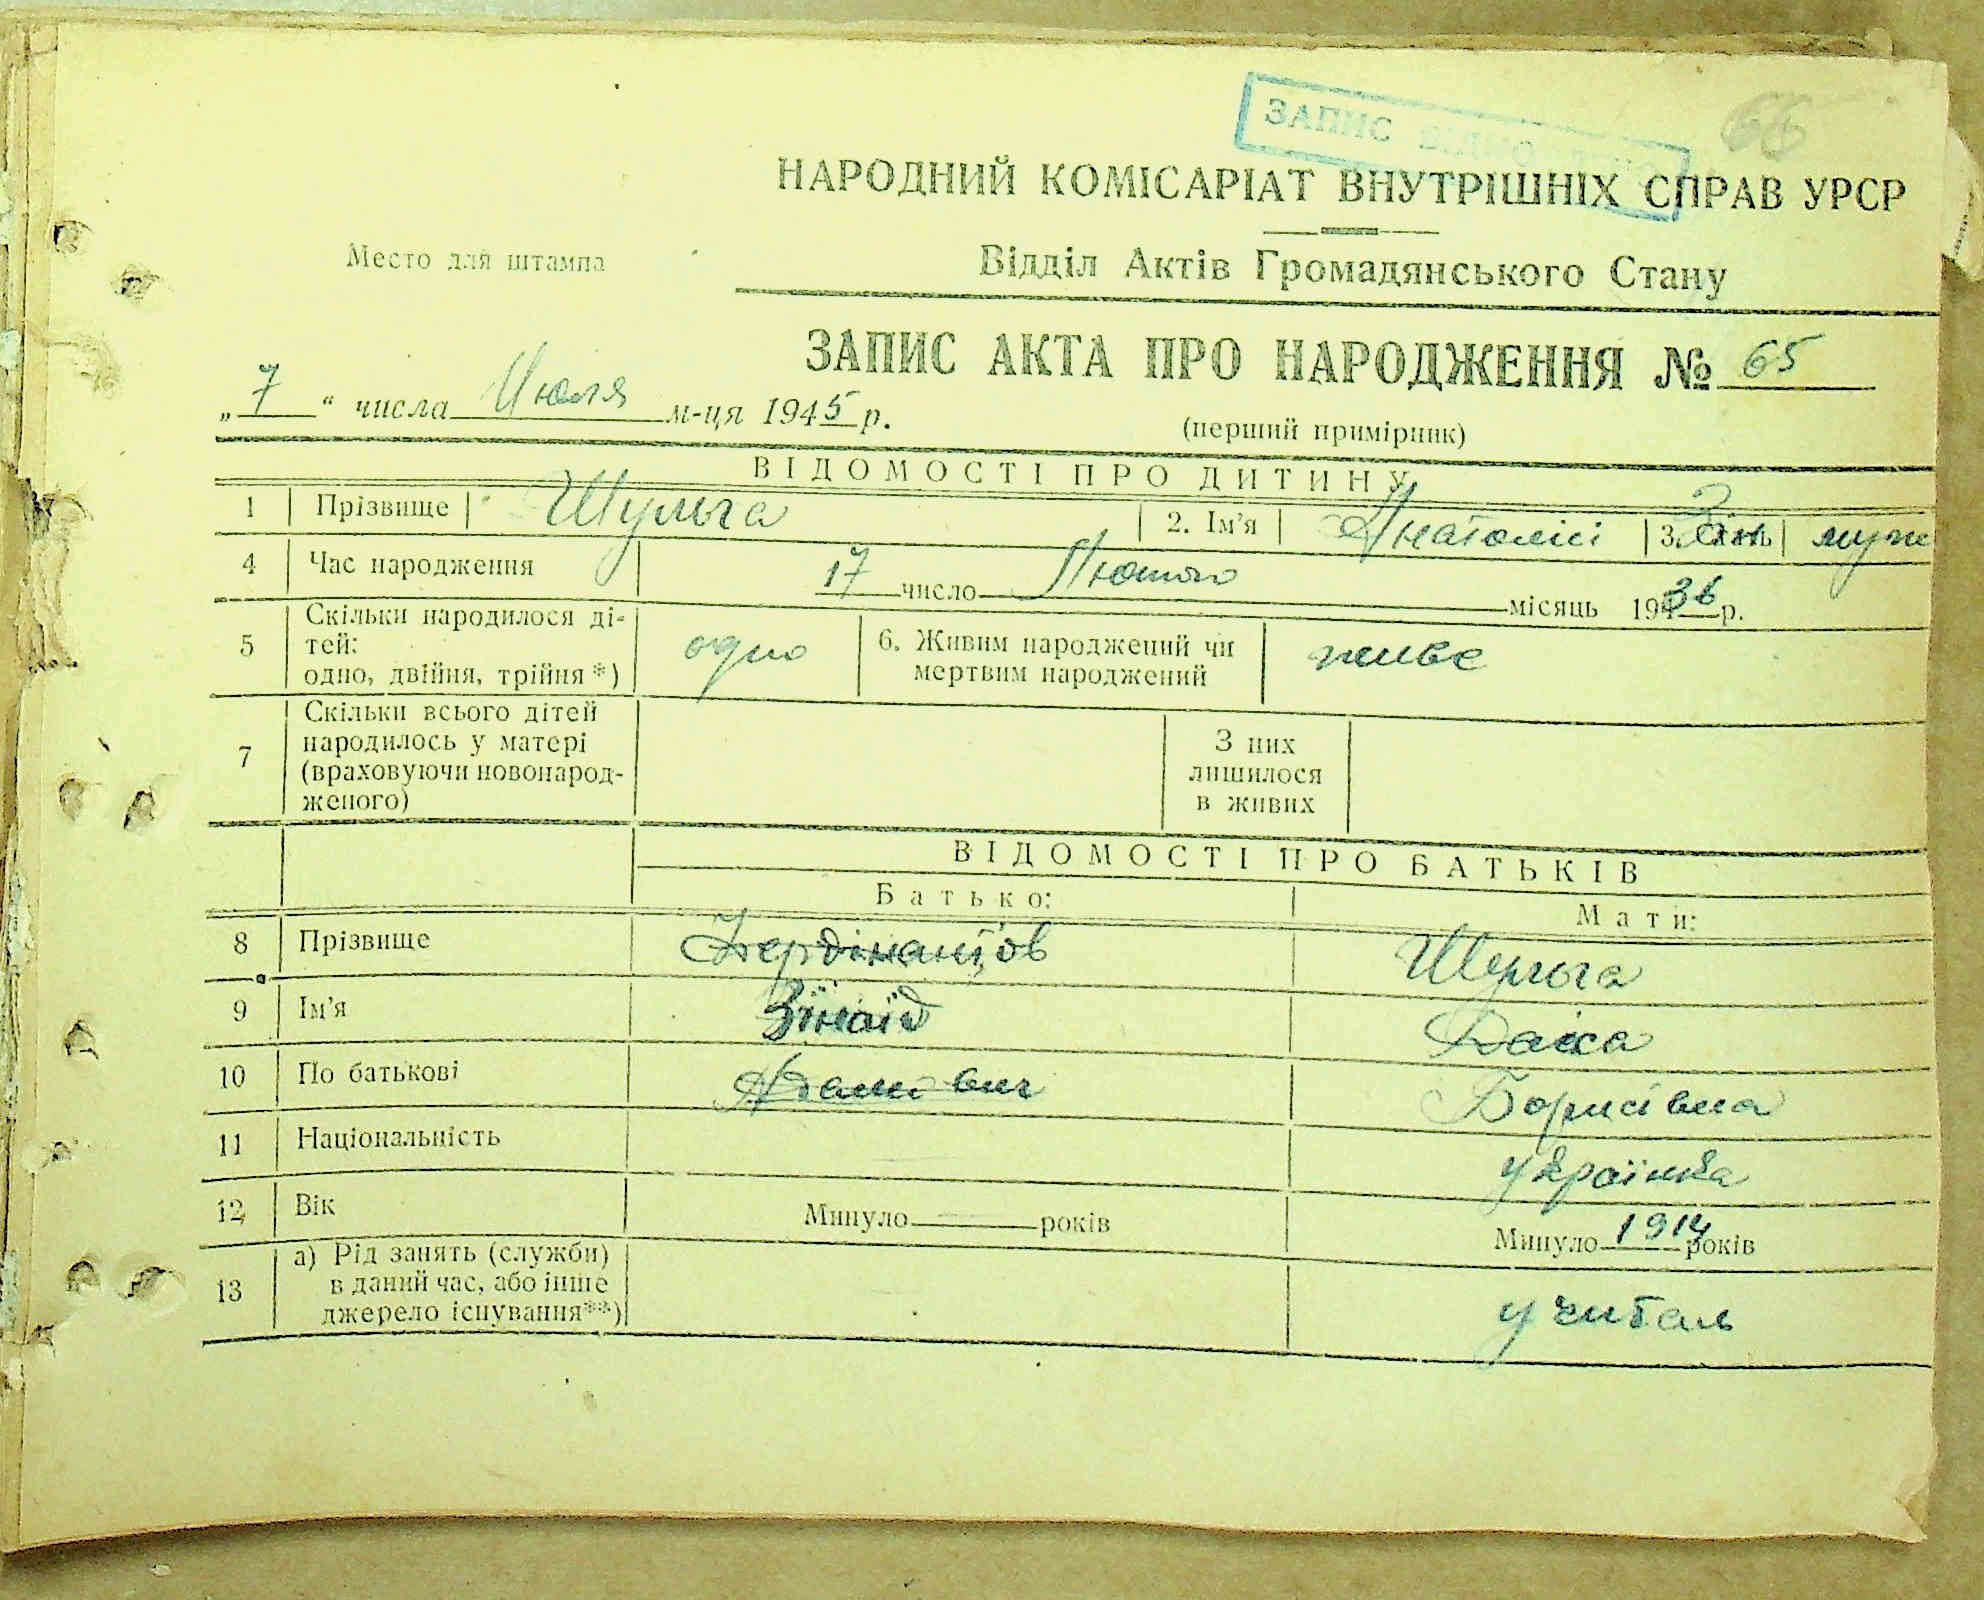 66
ЗАПИС ВІДНО
НАРОДНИЙ КОМІСАРІАТ ВНУТРІШНІХ СПРАВ УРСР
Место для штампа
Відділ Актів Громадянського Стану
ЗАПИС АКТА ПРО НАРОДЖЕННЯ № 65
„7“ числа Июля м-ця 1945 р.
(перший примірник)
ВІДОМОСТІ ПРО ДИТИНУ
1 Прізвище Шульга 2. Ім’я Анатолій 3. муж
4 Час народження 17 число Лютого місяць 1936 р.
5 Скільки народилося ді-
тей:
одно, двійня, трійня*) одно 6. Живим народжений чи
мертвим народжений живе
7 Скільки всього дітей
народилось у матері
(враховуючи новонарод-
женого)
З них
лишилося
в живих
ВІДОМОСТІ ПРО БАТЬКІВ
Батько: Мати:
8 Прізвище Шульга
9 Ім’я Зінаїд
10 По батькові Адамович Борисівна
11 Національність українка
12 Вік Минуло років Минуло 1914 років
13 а) Рід занять (служби)
в даний час, або інше
джерело існування**) учитель